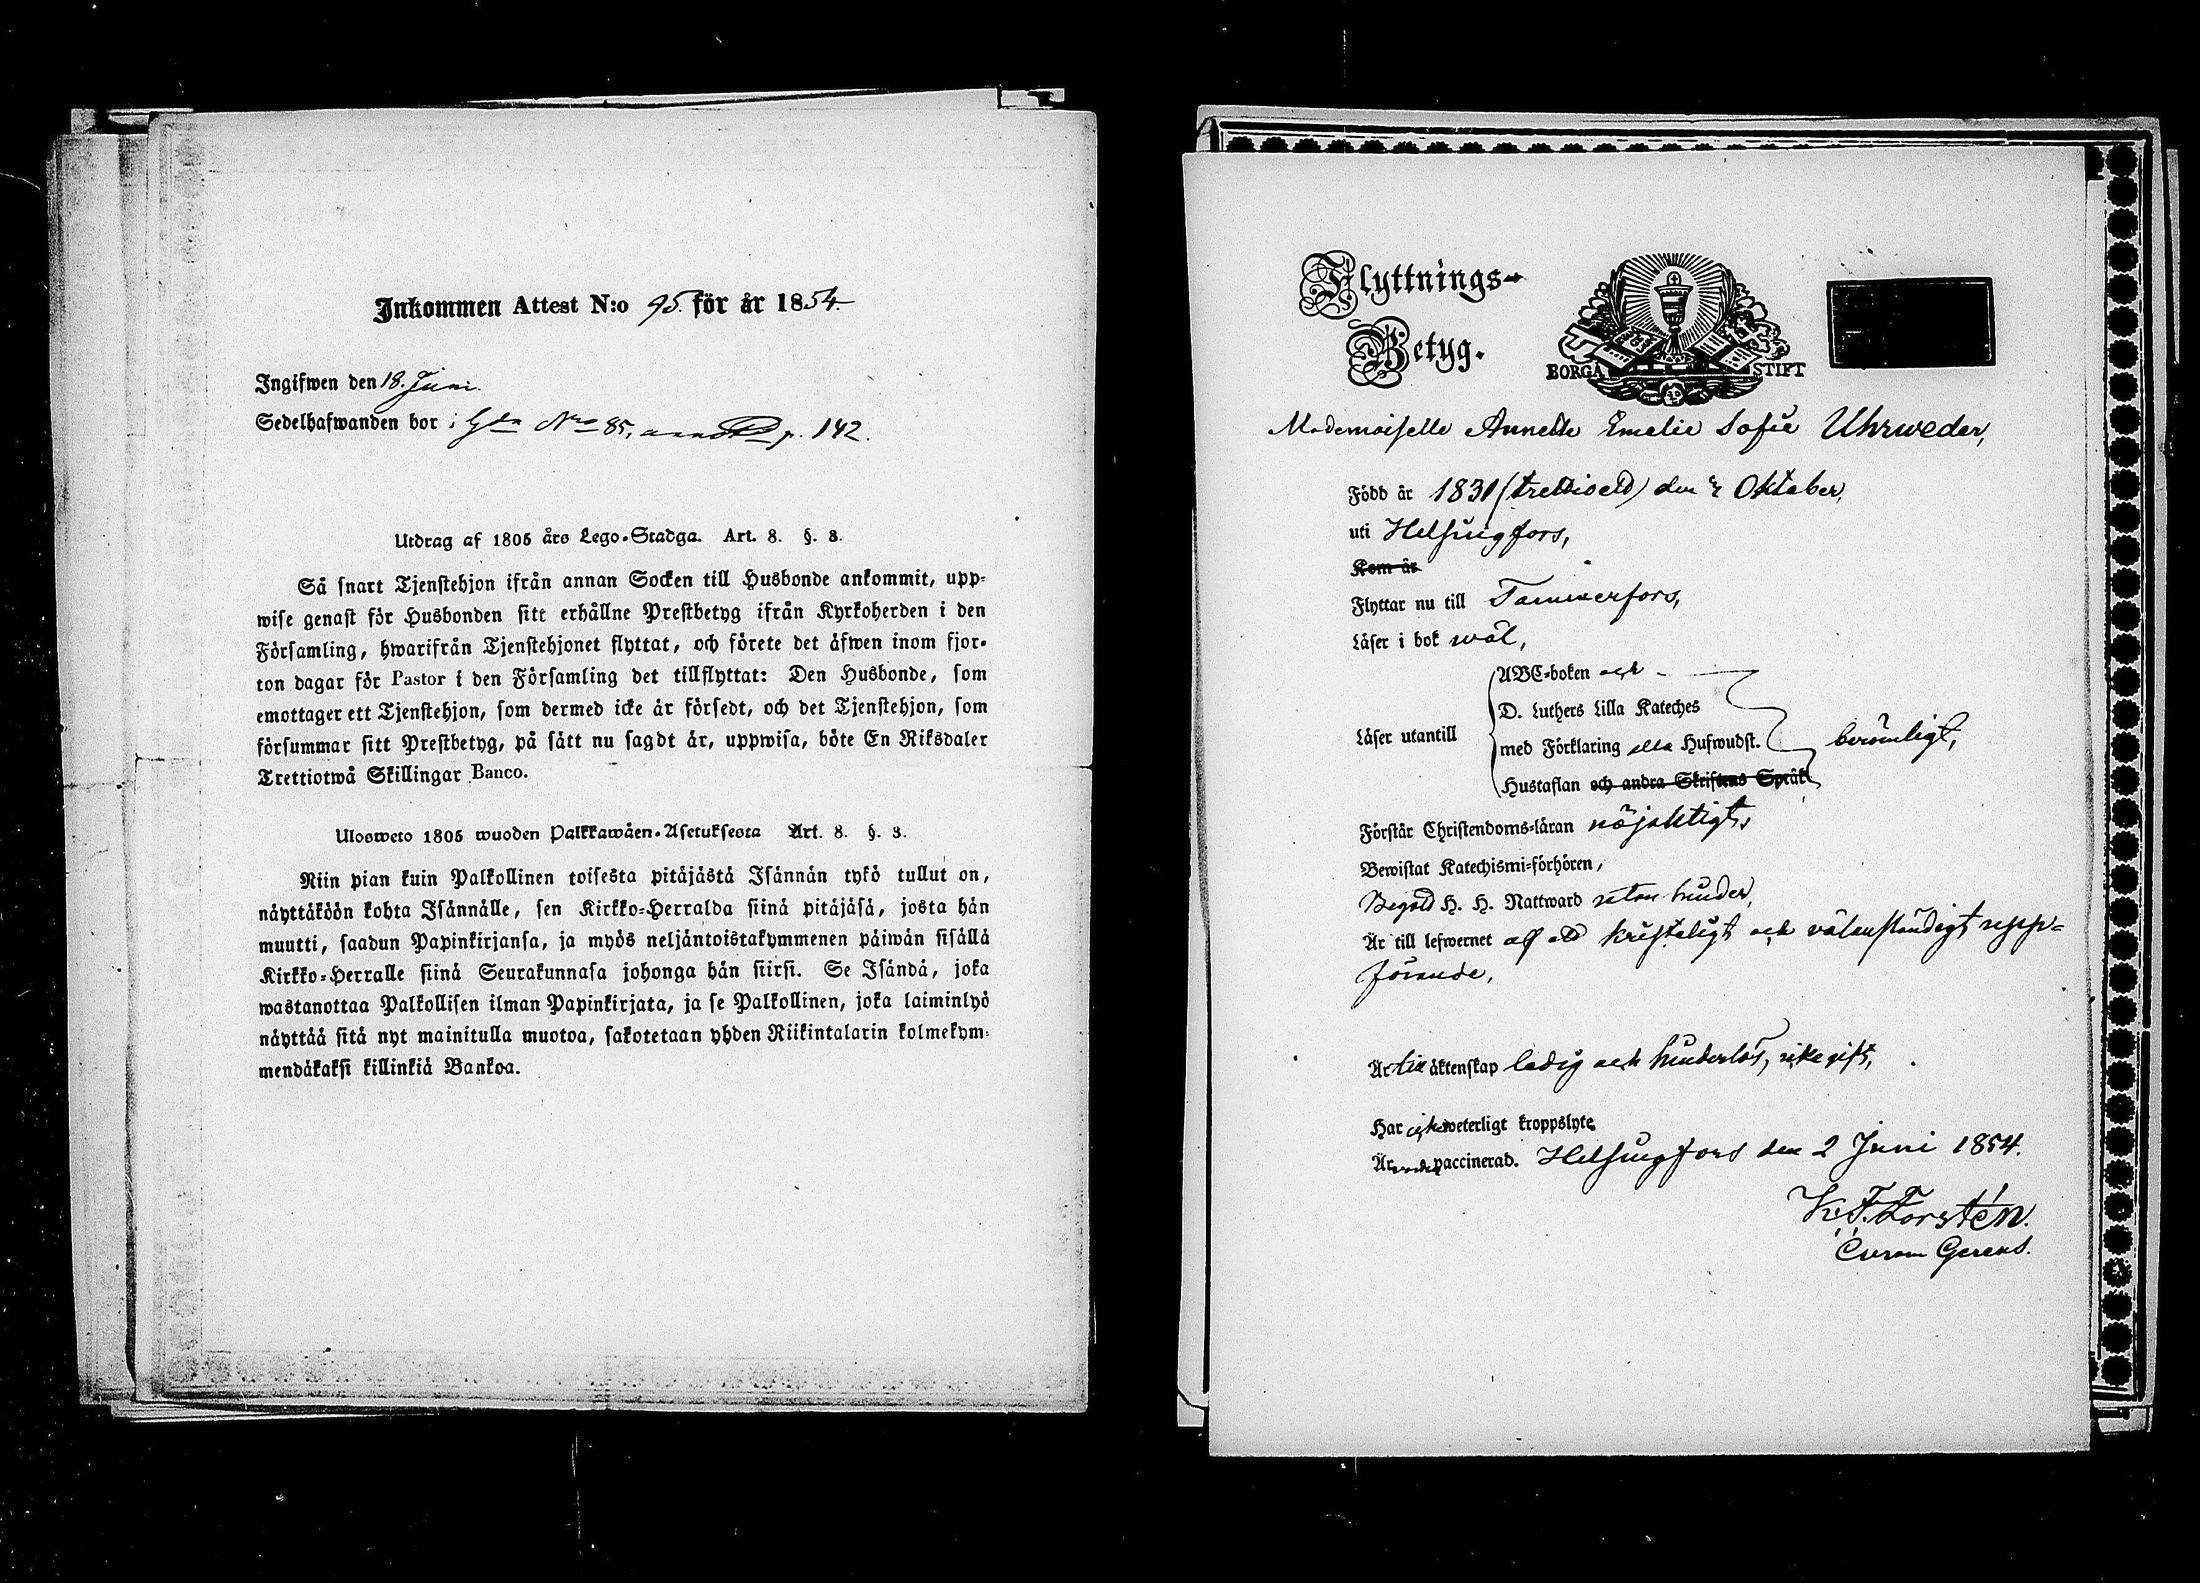 Inkommen Attest N:o 95. för år 1854.
Ingifwen den 18. Juni.
Sedelhafwanden bor i Gdn Nro 85, p. 142.
Utdrag af 1805 års Lego-Stadga. Art. 8. §. 3.
Så snart Tjenstehjon ifrån annan Socken till Husbonde ankommit, upp-
wise genast för Husbonden sitt erhållne Prestbetyg ifrån Kyrkoherden i den
Församling, hwarifrån Tjenstehjonet flyttat, och förete det äfwen inom fjor-
ton dagar för Pastor i den Församling det tillflyttat: Den Husbonde, som
emottager ett Tjenstehjon, som dermed icke är försedt, och det Tjenstehjon, som
försummar sitt Prestbetyg, på sätt nu sagdt är, uppwisa, böte En Riksdaler
Trettiotwå Skillingar Banco.
Ulosweto 1805 wuoden Palkkawäen-Asetuksesta Art. 8. §. 3.
Niin pian kuin Palkollinen toisesta pitäjästä Isännän tykö tullut on,
näyttäköön kohta Isännälle, sen Kirkko-Herralda siinä pitäjäsä, josta hän
muutti, saadun Papinkirjansa, ja myös neljäntoistakymmenen päiwän sisällä
Kirkko-Herralle siinä Seurakunnasa johonga hän siirsi. Se Isändä, joka
wastanottaa Palkollisen ilman Papinkirjata, ja se Palkollinen, joka laiminlyö
näyttää sitä nyt mainitulla muotoa, sakotetaan yhden Riikintalarin kolmekym-
mendäkaksi killinkiä Bankoa.
Flyttnings-
Betyg.
BORGÅ STIFT
Mademoiselle Annette Emelie Sofie Uhrweder,
Född år 1831 (trettioett) den 4 Oktober,
uti Helsingfors,
Kom år
Flyttar nu till Tammerfors,
Läser i bok wäl,
ABC-boken och
D. Luthers Lilla Kateches
Läser utantill med Förklaring alla Hufwudst. berömligt,
Hustaflan och andra Skriftens Språk
Förstår Christendoms-läran nöjaktigt,
Bewistat Katechismi-förhören,
Begått H. H. Nattward utan hinder,
Är till lefwernet af ett kristeligt och välanständigt upp-
förande,
Är till äktenskap ledig och hinderlös, icke gift,
Har icke weterligt kroppslyte
Är vaccinerad. Helsingfors den 2 Juni 1854.
K. F. Forstén.
Curam Gerens.